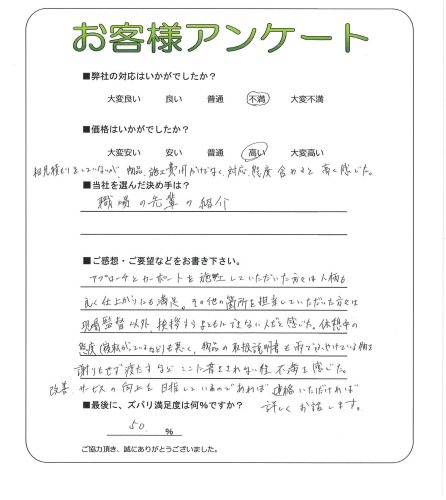 お客様アンケート
■弊社の対応はいかがでしたか?
大変良い 良い 普通 不満 大変不満
■価格はいかがでしたか?
大変安い 安い 普通 高い 大変高い
相見積もりをしていないが、物品、施工費用だけでなく、対応、態度含めると高く感じた。
■当社を選んだ決め手は?
職場の先輩の紹介
■ご感想・ご要望などをお書き下さい。
アプローチとカーポートを施工していただいた方々は人柄も
良く仕上がりにも満足。その他の箇所を担当していただいた方々は
現場監督以外、挨拶すらまともにできない人だと感じた。休憩中の
態度 も悪く、物品の取扱説明書も雨で
謝りもせず渡すなどここに書ききれない程不満を感じた。
改善、サービスの向上を目指しているのであれば連絡いただければ
詳しくお話します。
■最後に、ズバリ満足度は何%ですか?
50. %
ご協力頂き、誠にありがとうございました。